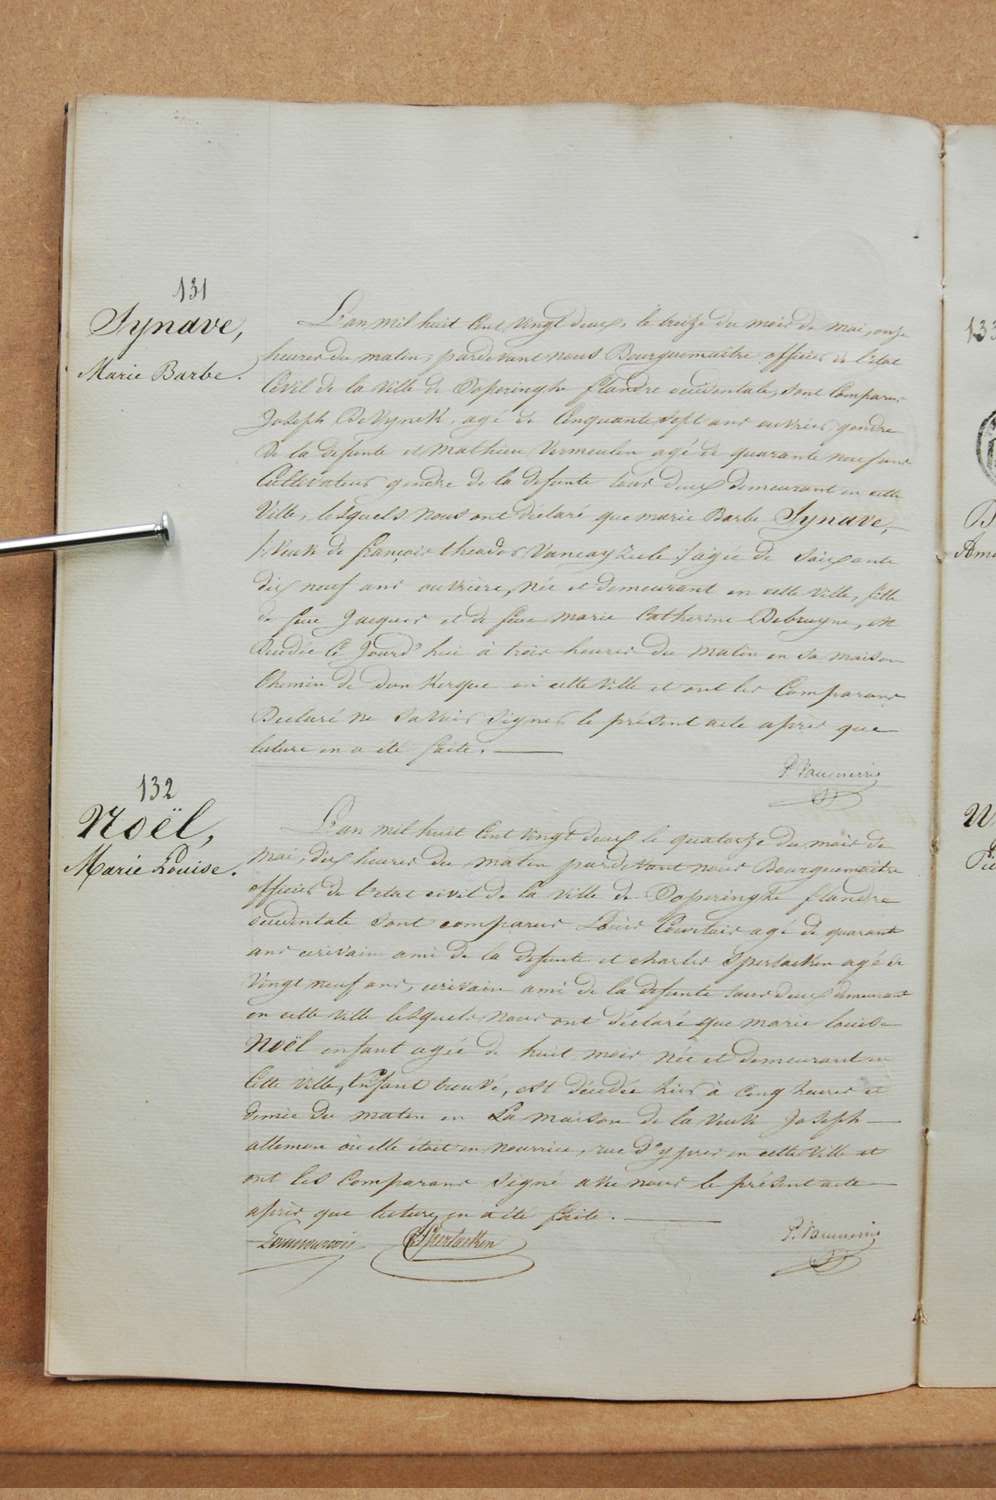 131
Synave,
Marie Barbe.
L'an mil huit Cent vingt deux, le treize du mois de Mai, onze
heures du matin, pardevant nous Bourguemaitre officier de l'etat
Civil de la Ville de Poperinghe flandre occidentale, sont Comparus
Joseph DeVynck, agé de Cinquante sept ans ouvrier, gendre
De la defunte et Mathieu Vermeulen agé de quarante neuf ans
Cultivateur gendre de la defunte tous deux demeurant en cette
Ville, lesquels nous ont déclaré que marie Barbe Synave,
Veuve de françois theodor agée de Soixante
dix neuf ans ouvrière, Née et demeurant en cette ville, fille
de feu Jacques et de feue Marie Catherine Debruyne, est
decedée Ce Jourd'hui à trois heures du matin en sa maison
Chemin de dunkerque en cette Ville et ont les Comparans
Declaré ne savoir signer le présent acte après que
lecture en a été faite.
132
Noël,
Marie Louise.
L'an mil huit Cent vingt deux le quatorze du mois de
Mai, dix heures du matin pardevant nous Bourguemaitre
officier de l'etat civil de la ville de Poperinghe flandre
occidentale sont comparus Louis agé de quarante
ans ecrivain ami de la defunte et charles Sperlaeken agé de
Vingt neuf ans, ecrivain ami de la defunte tous deux demeurant
en cette ville lesquels nous ont déclaré que marie louise
Noël enfant agée de huit mois née et demeurant en
Cette ville, Enfant trouvé, est décedée hier à Cinq heures et
demie du matin en La maison de la Veuve Joseph
alleman où elle etoit en nourrice, rue d'ypres en cette Ville et
ont les Comparans Signé avec nous le présent acte
après que lecture en a été faite.
C Sperlaeken
133